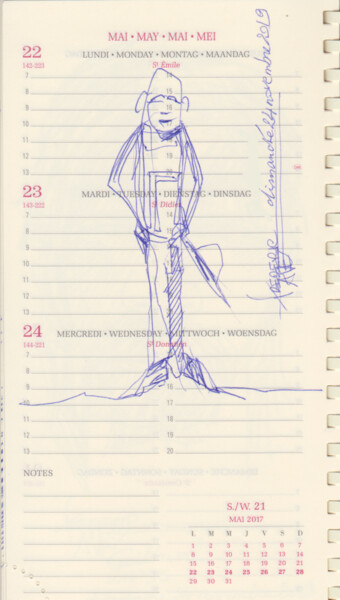 MAI • MAY • MAI • MEI
22
142-223
LUNDI • MONDAY • MONTAG • MAANDAG
St Émile
7
8
9
10
11
12
13
14
15
16
17
18
19
20
23
143-222
MARDI • TUESDAY • DIENSTAG • DINSDAG
St Didier
7
8
9
10
11
12
13
14
15
16
17
18
19
20
24
144-221
MERCREDI • WEDNESDAY • MITTWOCH • WOENSDAG
St Donatien
7
8
9
10
11
12
13
16
17
18
19
20
NOTES
S./W. 21
MAI 2017
L M M J V S D
1 2 3 4 5 6 7
8 9 10 11 12 13 14
15 16 17 18 19 20 21
22 23 24 25 26 27 28
29 30 31
dimanche 24 novembre 2019